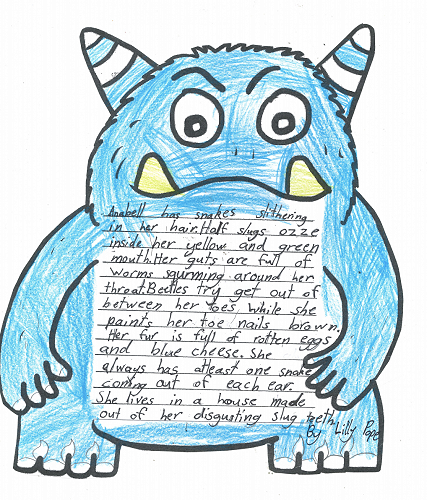 Anabell has snakes slithering
in her hair. Half slugs ozze
inside her yellow and green
mouth. Her guts are full of
worms squrming around her
throat. Beetles try get out of
between her toes while she
paints her toe nails brown.
Her fur is full of rotten eggs
and blue cheese. She
always has atleast one snake
coming out of each ear.
She lives in a house made
out of her disgusting slug teeth.
By Lilly Pope